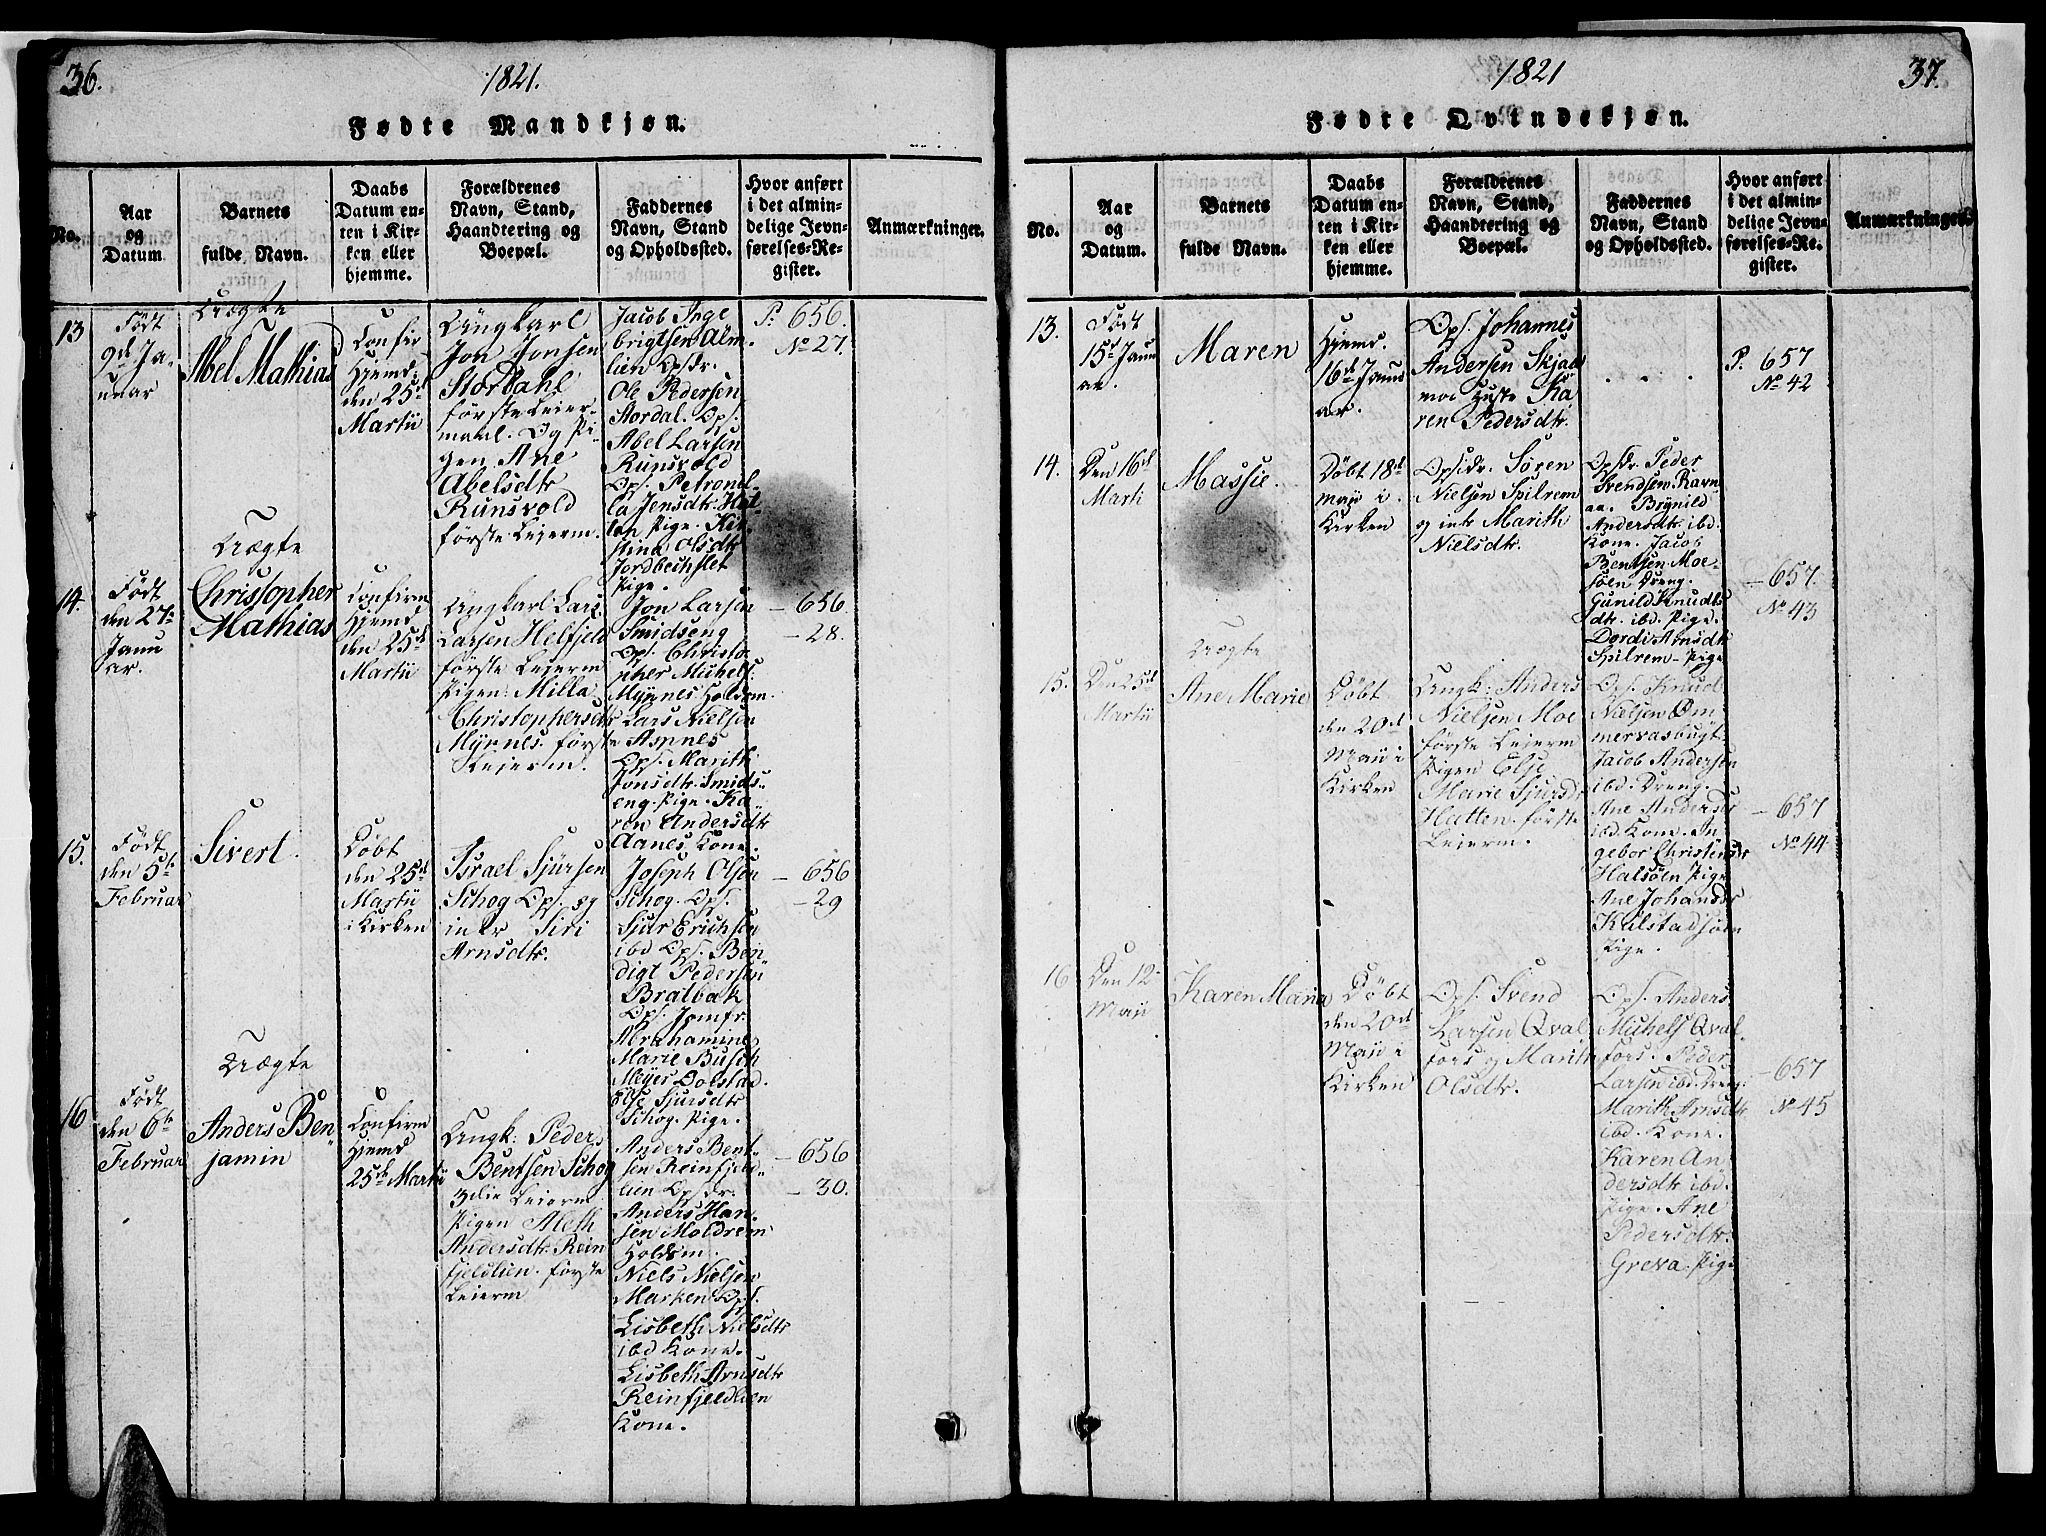 36.
1821.
Fødte Mandkjøn.
No.
Aar
og
Datum
Barnets
fulde Navn.
Daabs
Datum en-
ten i Kir-
ken eller
hjemme.
Forældrenes
Navn, Stand,
Haandtering og
Boepæl.
Faddernes
Navn, Stand
og Opholdssted.
Hvor anført
i det almin-
delige Jevn-
førelses-Re-
gister.
Anmærkninger.
13
Født
9de Ja-
nuar
Uægte
Abel Mathias
Confir
Hjemd:
den 25de
Martii
Ungkarl
Jon Jonsen
Stordahl
første Leier-
maal. Og Pi-
gen Ane
Abelsdtr
Runsvold
første Leierm.
Jacob Inge
brigtsen Alm-
lien Opsdr.
Ole Pedersen
Stordal. Ops.
Abel Larsen
Runsvold
Ops. Petronel-
la Jensdtr. Hat-
ten Pige. Kir-
stina Olsdtr
Jordbechslet
Pige.
P. 656.
No 27.
14.
Født
den 27.
Janu
ar.
Uægte
Christopher
Mathias
Confirm
Hjemd
den 25de
Martii
Ungkarl Lars
Larsen Helfjeld
første Leierm
Pigen: Milla
Christophersdtr
Mynnes. første
Leierm.
Jon Larsen
Smidseng
Ops. Christo
pher Michels.
Mynnes Holdsm.
Lars Nielsen
Aspnes
Ops. Marith
Jonsdtr. Smids-
eng. Pige. Ka
ren Andersdtr
Aanes Kone.
- 656.
- 28.
15.
Født
den 5te
Februar
Sivert.
Døbt
den 25de
Martii
i Kirken
Israel Sjursen
Schog Ops. og
intr Siri
Arnsdtr.
Joseph Olsen
Schog. Ops.
Sjur Erichsen
ibd Ops. Ben
digt Pedersen
Bratbak
Ops. Jomfr.
Abrahamine
Marie Busch
Meyer Dolstad.
Else Sjursdtr
Schog. Pige.
- 656
- 29
16
Født
den 6te
Februar
Uægte
Anders Ben
jamin
Confirm
Hjemd
25de Martii
Ungk: Peder
Bentsen Schog
3die Leierm
Pigen Aleth
Andersdtr. Rein
fjeldlien. første
Leierm
Anders Bent-
sen Reinfjeld-
lien Opsdr.
Anders Han
sen Moldrem
Holdsm.
Niels Nielsen
Marken Ops.
Lisbeth Nielsdtr
ibd Kone.
Lisbeth Arnsdtr
Reinfjeldlien
Kone.
- 656
- 30.
1821
37.
Fødte Qvindekjøn.
No.
Aar
og
Datum.
Barnets
fulde Navn.
Daabs
Datum en-
ten i Kir-
ken eller
hjemme.
Forældrenes
Navn, Stand,
Haandtering og
Boepæl.
Faddernes
Navn, Stand
og Opholdssted.
Hvor anført
i det almin-
delige Jevn-
førelses-Re-
gister.
Anmærkninger.
13.
Født
15de Janu
ar.
Maren
Hjemd.
16de Janu
ar.
Ops. Johannes
Andersen Skjaa
moe Huste Ka
ren Pedersdtr.
. . . .
P. 657
No 42
14.
Den 16de
Marti
Massie.
Døbt 18de
Maii i
Kirken
Opsdr. Søren
Nielsen Spilrem
og intr Marith
Nielsdtr.
Opsdr. Peder
Svendsen Ravn
aa. Brynild
Andersdtr. ibd.
Kone. Jacob
Bentsen Moe-
søen Dreng.
Gunild Knuds
dtr. ibd. Pige.
Dordi Arnsdtr
Spilrem- Pige
- 657.
No 43
15.
Den 25de
Martii
Uægte
Ane Marie
Døbt
den 20de
Maii i
Kirken
Ungk: Anders
Nielsen Moe
første Leierm
Pigen Else
Marie Sjursdtr
Hatten. første
Leierm.
Ops. Knud
Nielsen Øm
mervasbugt.
Jacob Andersen
ibd. Dreng.
Ane Andersdtr
ibd. Kone. In
gebor Christensdr
Halsøen Pige
Ane Johansdr
Kulstadsøen
Pige.
- 657
No 44
16
Den 12
Maii
Karen Maria
Døbt
den 20de
Maii i
Kirken
Ops. Svend
Larsen Qval
fors og Marith
Olsdtr.
Ops. Anders
Michels Qval-
fors. Peder
Larsen ibd. Dreng.
Marith Arnsdtr
ibd. Kone.
Karen An
dersdtr ibd.
Pige. Ane
Pedersdtr.
Greva. Pige
- 657
No 45